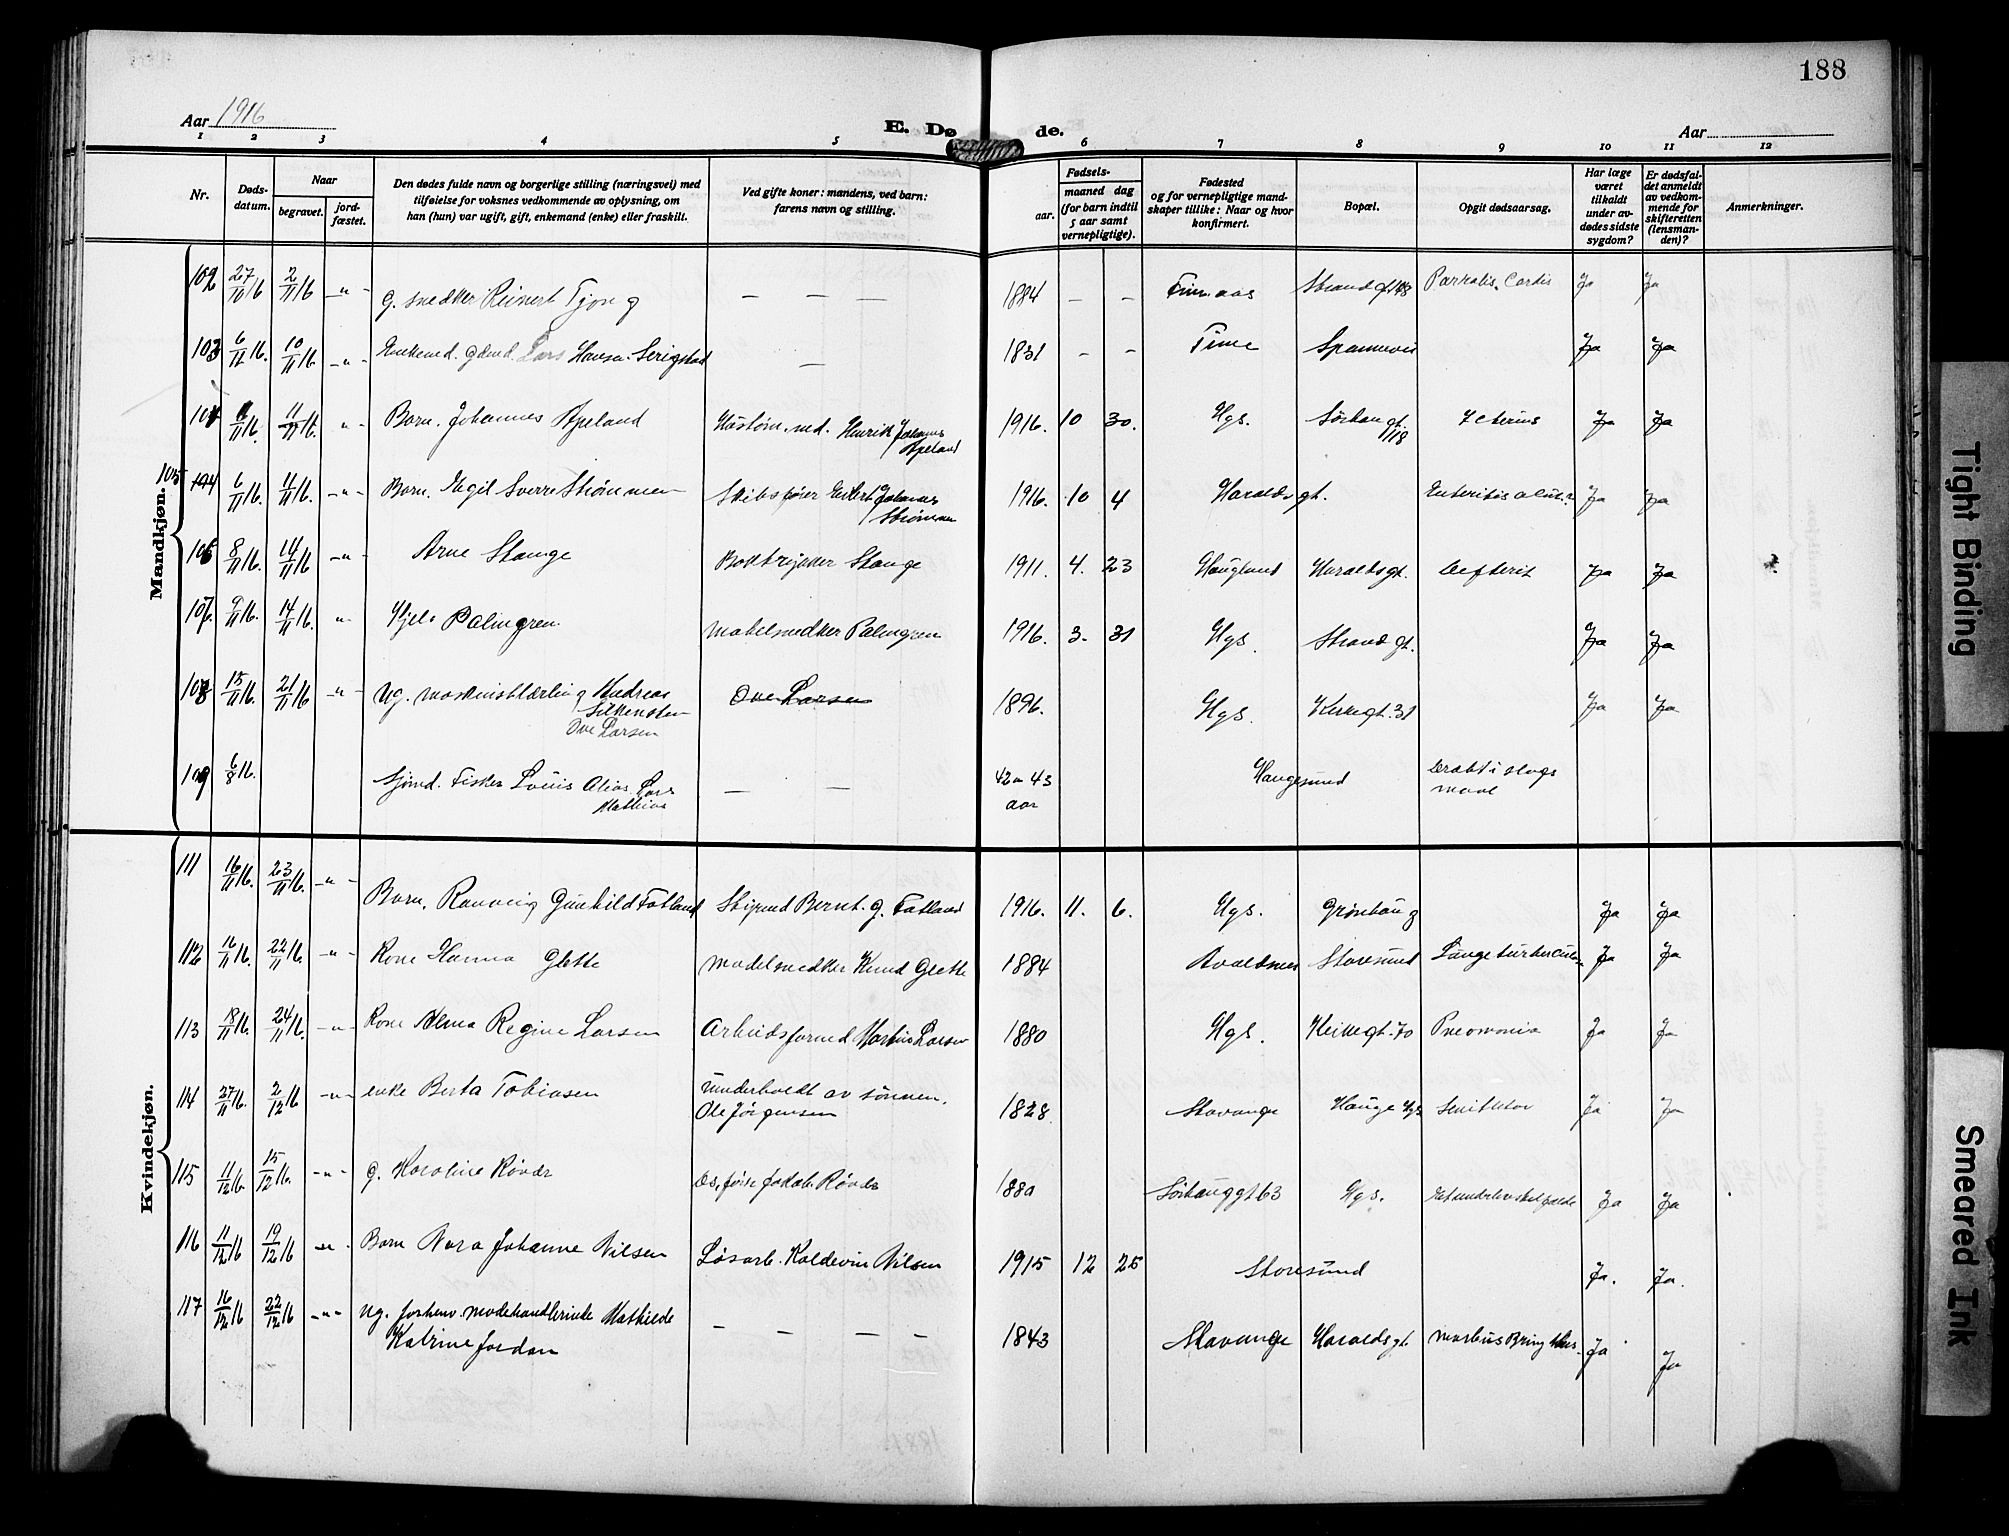 188
Aar 1916
E. Dø de.
Aar
1 2 3 4 5 6 7 8 9 10 11 12
Nr.
Døds-
datum.
Naar
begravet.
jord-
fæstet.
Den dødes fulde navn og borgerlige stilling (næringsvei) med
tilføielse for voksnes vedkommende av oplysning, om
han (hun) var ugift, gift, enkemand (enke) eller fraskilt.
Ved gifte koner: mandens, ved barn:
farens navn og stilling.
Fødsels-
aar.
maaned dag
(for barn indtil
5 aar samt
vernepligtige).
Fødested
og for vernepligtige mand-
skaper tillike: Naar og hvor
konfirmert.
Bopæl.
Opgit dødsaarsag.
Har læge
været
tilkaldt
under av-
dødes sidste
sygdom?
Er dødsfal-
det anmeldt
av vedkom-
mende for
skifteretten
(lensman-
den)?
Anmerkninger.
Mandkjøn.
102 27/10 16 2/11 16 -"- g. snedker Reinert Tjong — — — 1884 - - Strandgt. 148 Paralis. Cordis Ja Ja
103 6/11 16. 10/11 16. -"- Enkemd. gdmd. Lars Hansen Serigstad — 1831 - - Time Ja Ja
104 /11 16. 11/11 16. -"- Barn. Johannes Apeland Henrik Johannes
Apeland 1916. 10 30. Hgs. Sørhaugt.
118 Icterus Ja Ja
105 104 6/11 16. 11/11 16. -"- Barn. Sverre Strømmen Skibsfører Johannes
Strømmen 1916. 10 4 Haraldsgt. Enteritis acut. Ja Ja
106 8/11 16. 14/11 16 -"- Arne Stange Boktrykker Stange 1911. 4. 23 Haugland Haraldsgt. Defterit Ja Ja
107. 9/11 16. 14/11 16. -"- Kjell Palmgren Møbelsnedker Palmgren 1916. 3. 31 Hgs. Strandgt. Ja Ja
108 15/11 16. 21/11 16 -"- ug. maskinistlærling Andreas
Ove Larsen Ove Larsen 1896. Hgs. Kirkegt. 31 Ja Ja
109 6/8 16. Sjømd. Fisker Louis alias Lars
Mathias — — 42 a 43
aar Haugesund Dræbt i slags
maal
Kvindekjøn.
111 16/11 16. 23/11 16. -"- Barn. Ranveig Gunhild Fatland Bernt. G. Fatland 1916. 11. 6. Hgs. Grønhaug Ja Ja
112 16/11 16. 22/11 16. -"- Kone Hanna Glette Knud Glette 1884 Avaldsnes Storesund Ja Ja
113 18/11 16. 24/11 16. -"- Kone Alma Regine Larsen Arbeidsformd Larsen 1880 Hgs. Kirkegt. 70 Pneomonia Ja Ja
114 27/11 16. 2/12 16 -"- enke Berta Tobiasen Underholdt av sønnen.
Ole Jørgensen 1828. Stavanger Hauge Hgs Ja Ja
115 11/12 16. 15/12 16. -"- g. Karoline Røvær Jakob Røvær 1880 Sørhauggt 63 Hgs. Ja Ja
116 11/12 16 19/12 16 -"- Barn Nora Johanne Nilsen Løsarb. Koldevin Nilsen 1915 12 25 Storesund Ja. Ja.
117 16/12 16 22/12 16 -"- ug. forhenv. modehandlerinde Mathilde
Katrine Jordan — — — — 1843 Stavanger Haraldsgt. Ja Ja
Tight Binding
Smeared Ink